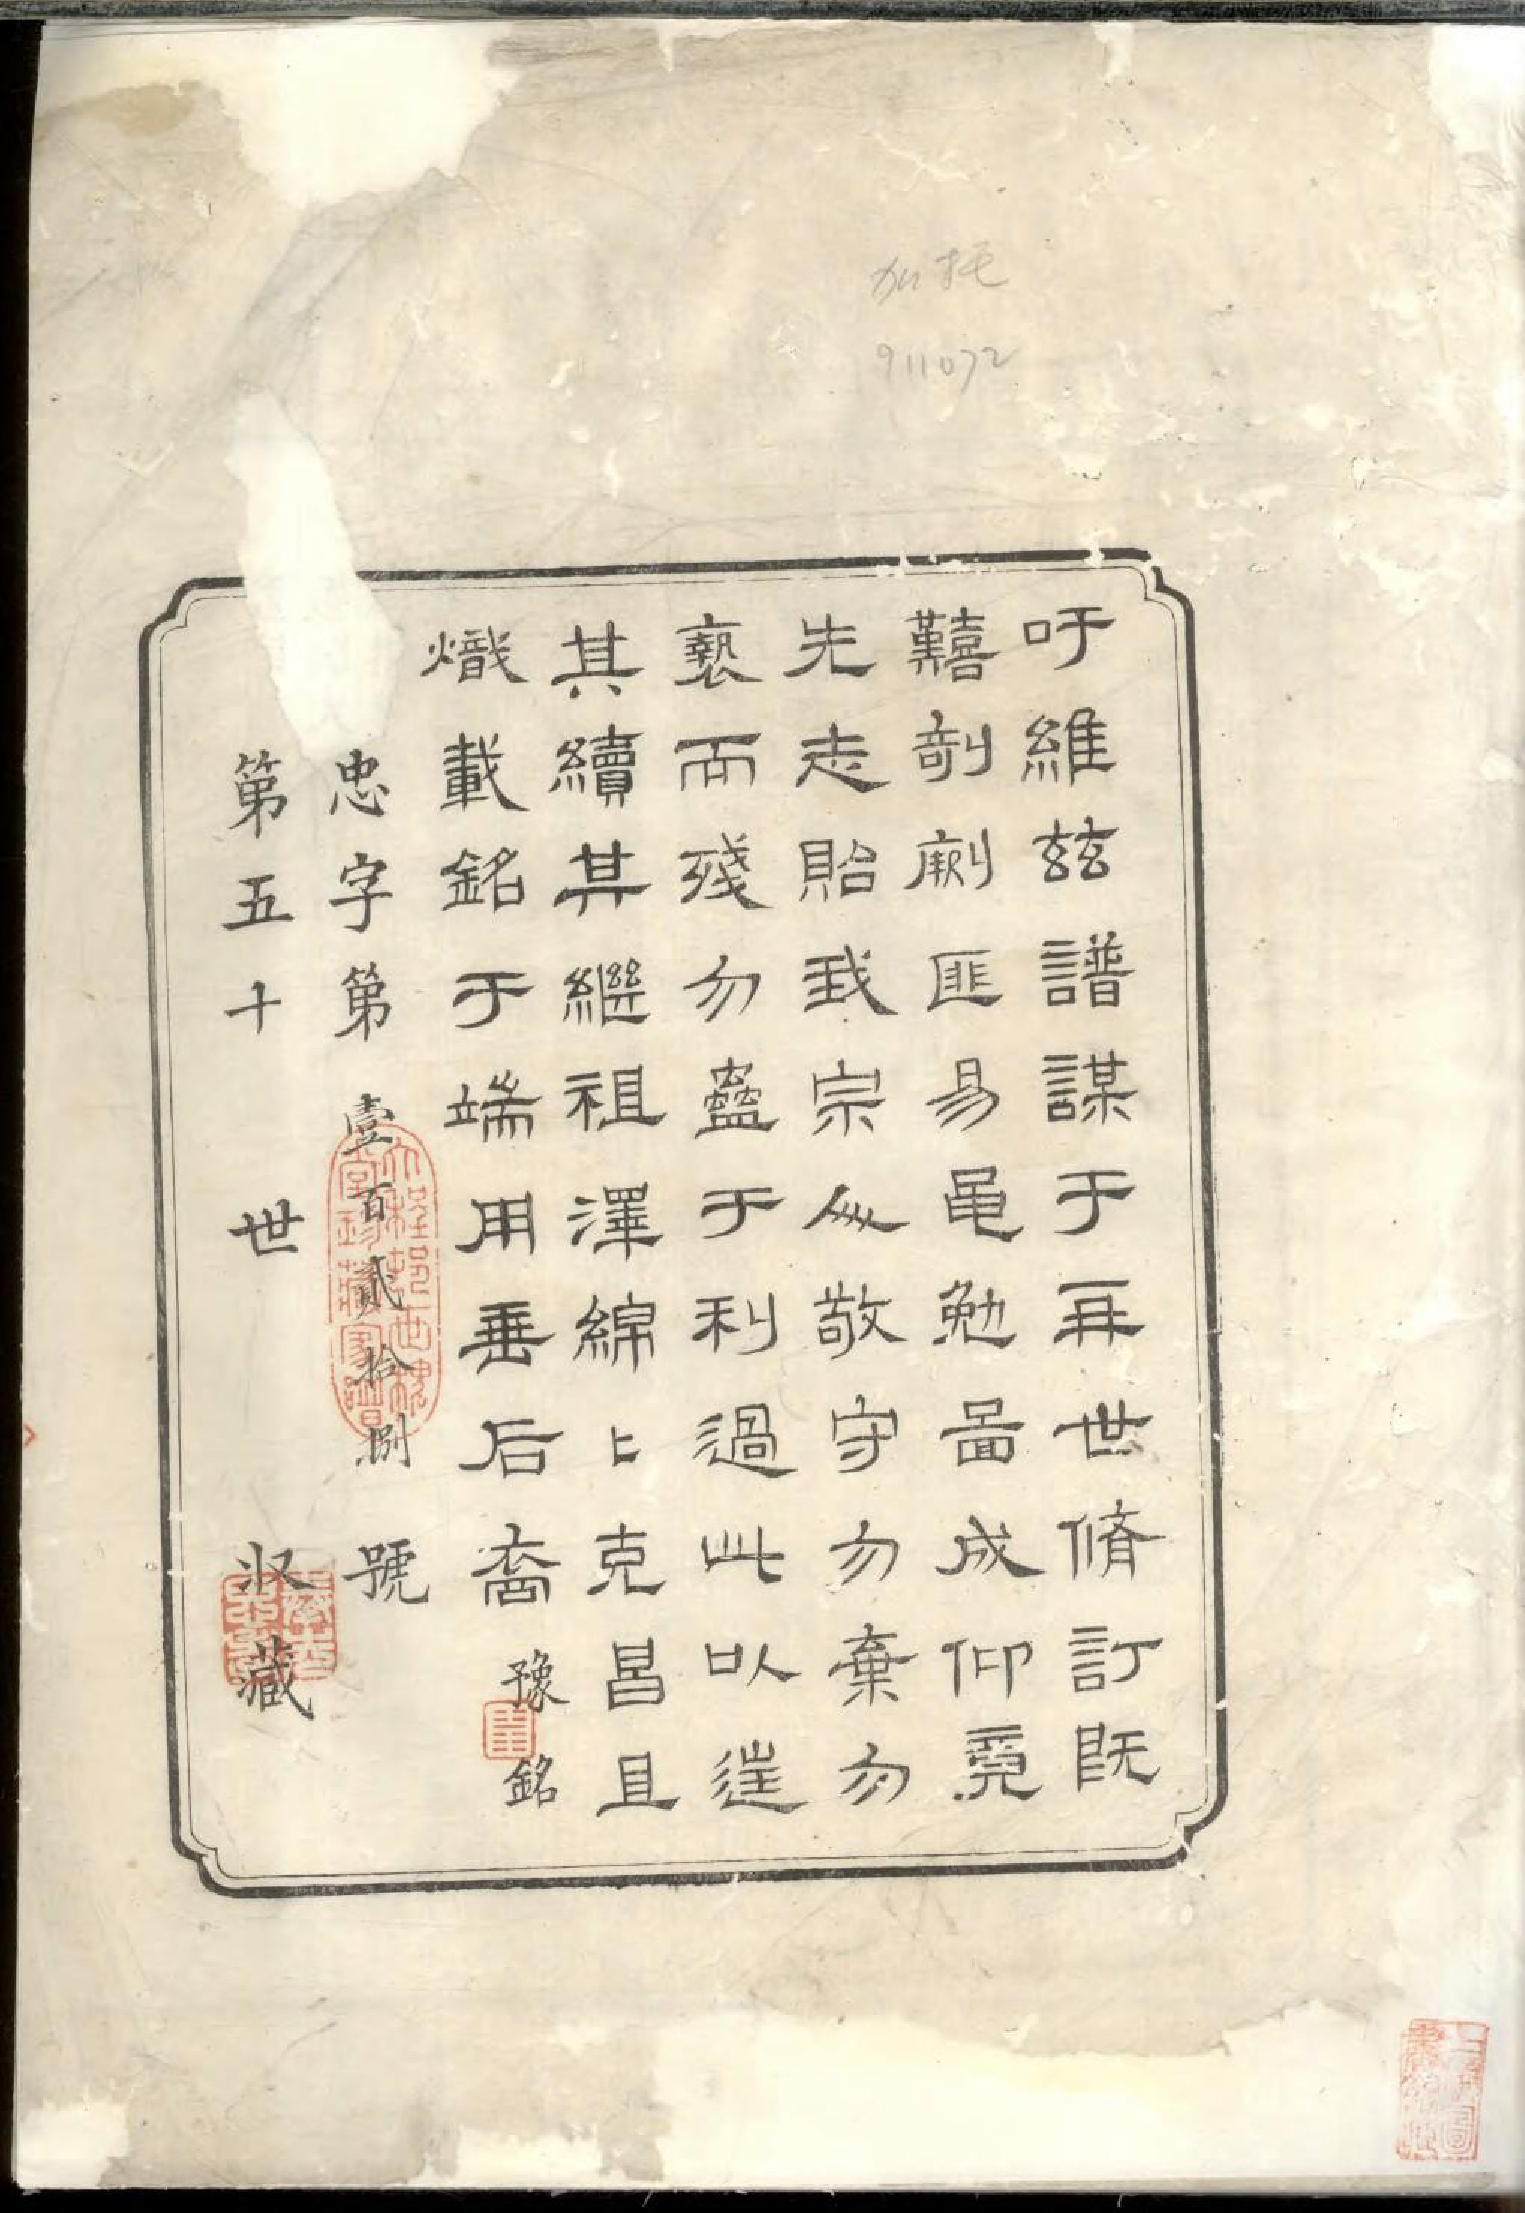 加托
911072
吁維玆譜謀于再世脩訂既
囏剞劂匪易黽勉啚成仰覓
先志貽我宗人敬守勿棄勿
褻而殘勿蠱于利過此以逞
其續其繼祖澤綿〻克昌且
熾載銘于端用垂后裔豫銘
忠字第壹百貳拾捌號
第五十世收藏